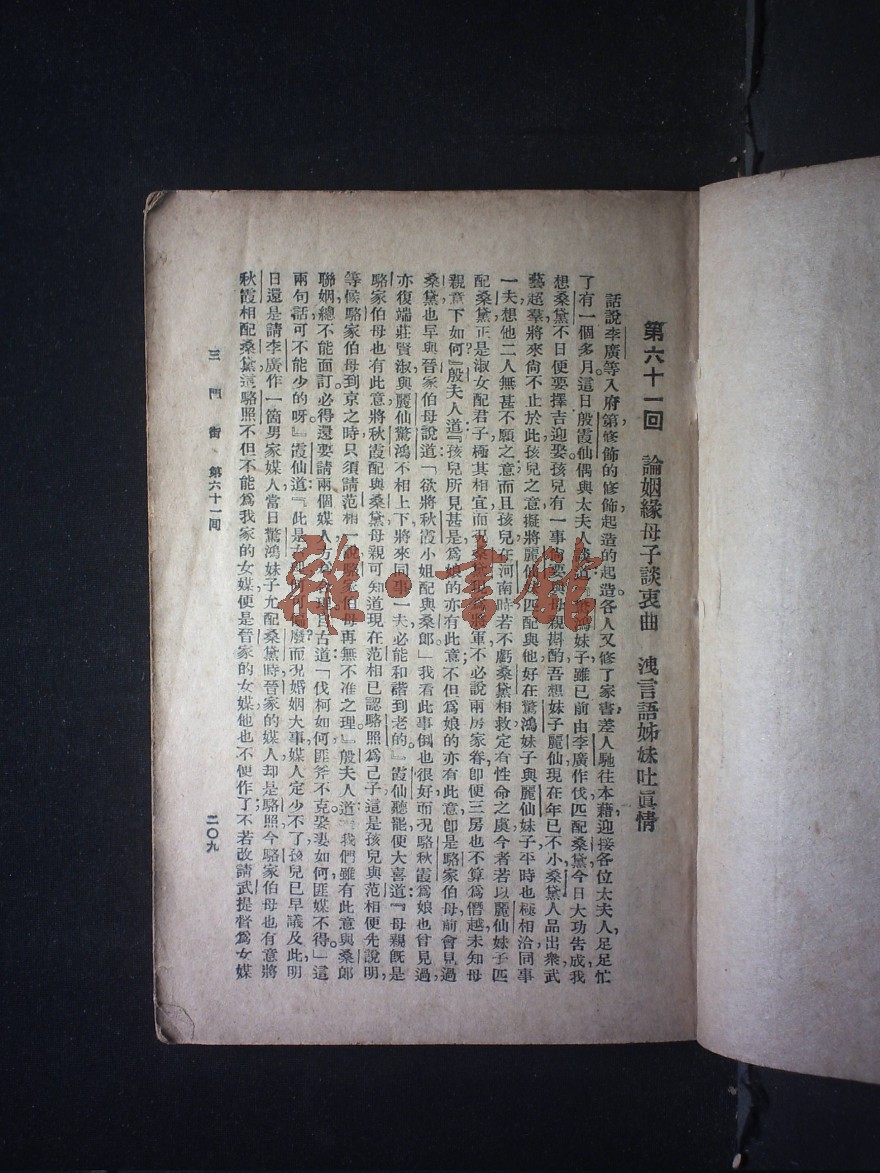 第六十一回　論姻緣母子談衷曲　洩言語姊妹吐眞情
話說李廣等入府第修飾的修飾起造的起造各人又修了家書差人馳往本藉迎接各位太夫人足足忙
了有一個多月這日殷霞仙偶與太夫人談道鴻妹子雖已前由李廣作伐匹配桑黛今日大功告成我
想桑黛不日便要擇吉迎娶孩兒有一事要與母親斟酌吾想妹子麗仙現在年已不小桑黛人品出衆武
藝超羣將來尙不止於此孩兒之意擬將麗仙匹配與他好在驚鴻妹子與麗仙妹子平時也極相洽同事
一夫想他二人無甚不願之意而且孩兒在河南時若不虧桑黛相救定有性命之虞今者若以麗仙妹子匹
配桑黛正是淑女配君子極其相宜而况桑黛將軍不必說兩房家眷卽便三房也不算爲僭越未知母
親意下如何』殷夫人道『孩兒所見甚是爲娘的亦有此意不但爲娘的亦有此意卽是駱家伯母前會見過
桑黛也早與晉家伯母說道「欲將秋霞小姐配與桑郞」我看此事倒也很好而况駱秋霞爲娘也曾見過
亦復端莊賢淑與麗仙驚鴻不相上下將來同事一夫必能和諧到老的』霞仙聽罷便大喜道『母親旣是
駱家伯母也有此意將秋霞配與桑黛母親可知道現在范相已認駱照爲己子這是孩兒與范相便先說明
等候駱家伯母到京之時只須請范相一說駱家伯母再無不准之理』殷夫人道『我們雖有此意與桑郞
聯姻總不能面訂必得還要請兩個媒人方古道「伐柯如何匪斧不克娶妻如何匪媒不得」這
兩句話可不能少的呀』霞仙道『此是廢而况婚姻大事媒人定少不了孩兒已早議及此明
日還是請李廣作一箇男家媒人當日驚鴻妹子尤配桑黛時晉家的媒人却是駱照今駱家伯母也有意將
秋霞相配桑黛這駱照不但不能爲我家的女媒便是晉家的女媒他也不便作了不若改請武提督爲女媒
三門街　第六十一回　二〇九
雜·書館